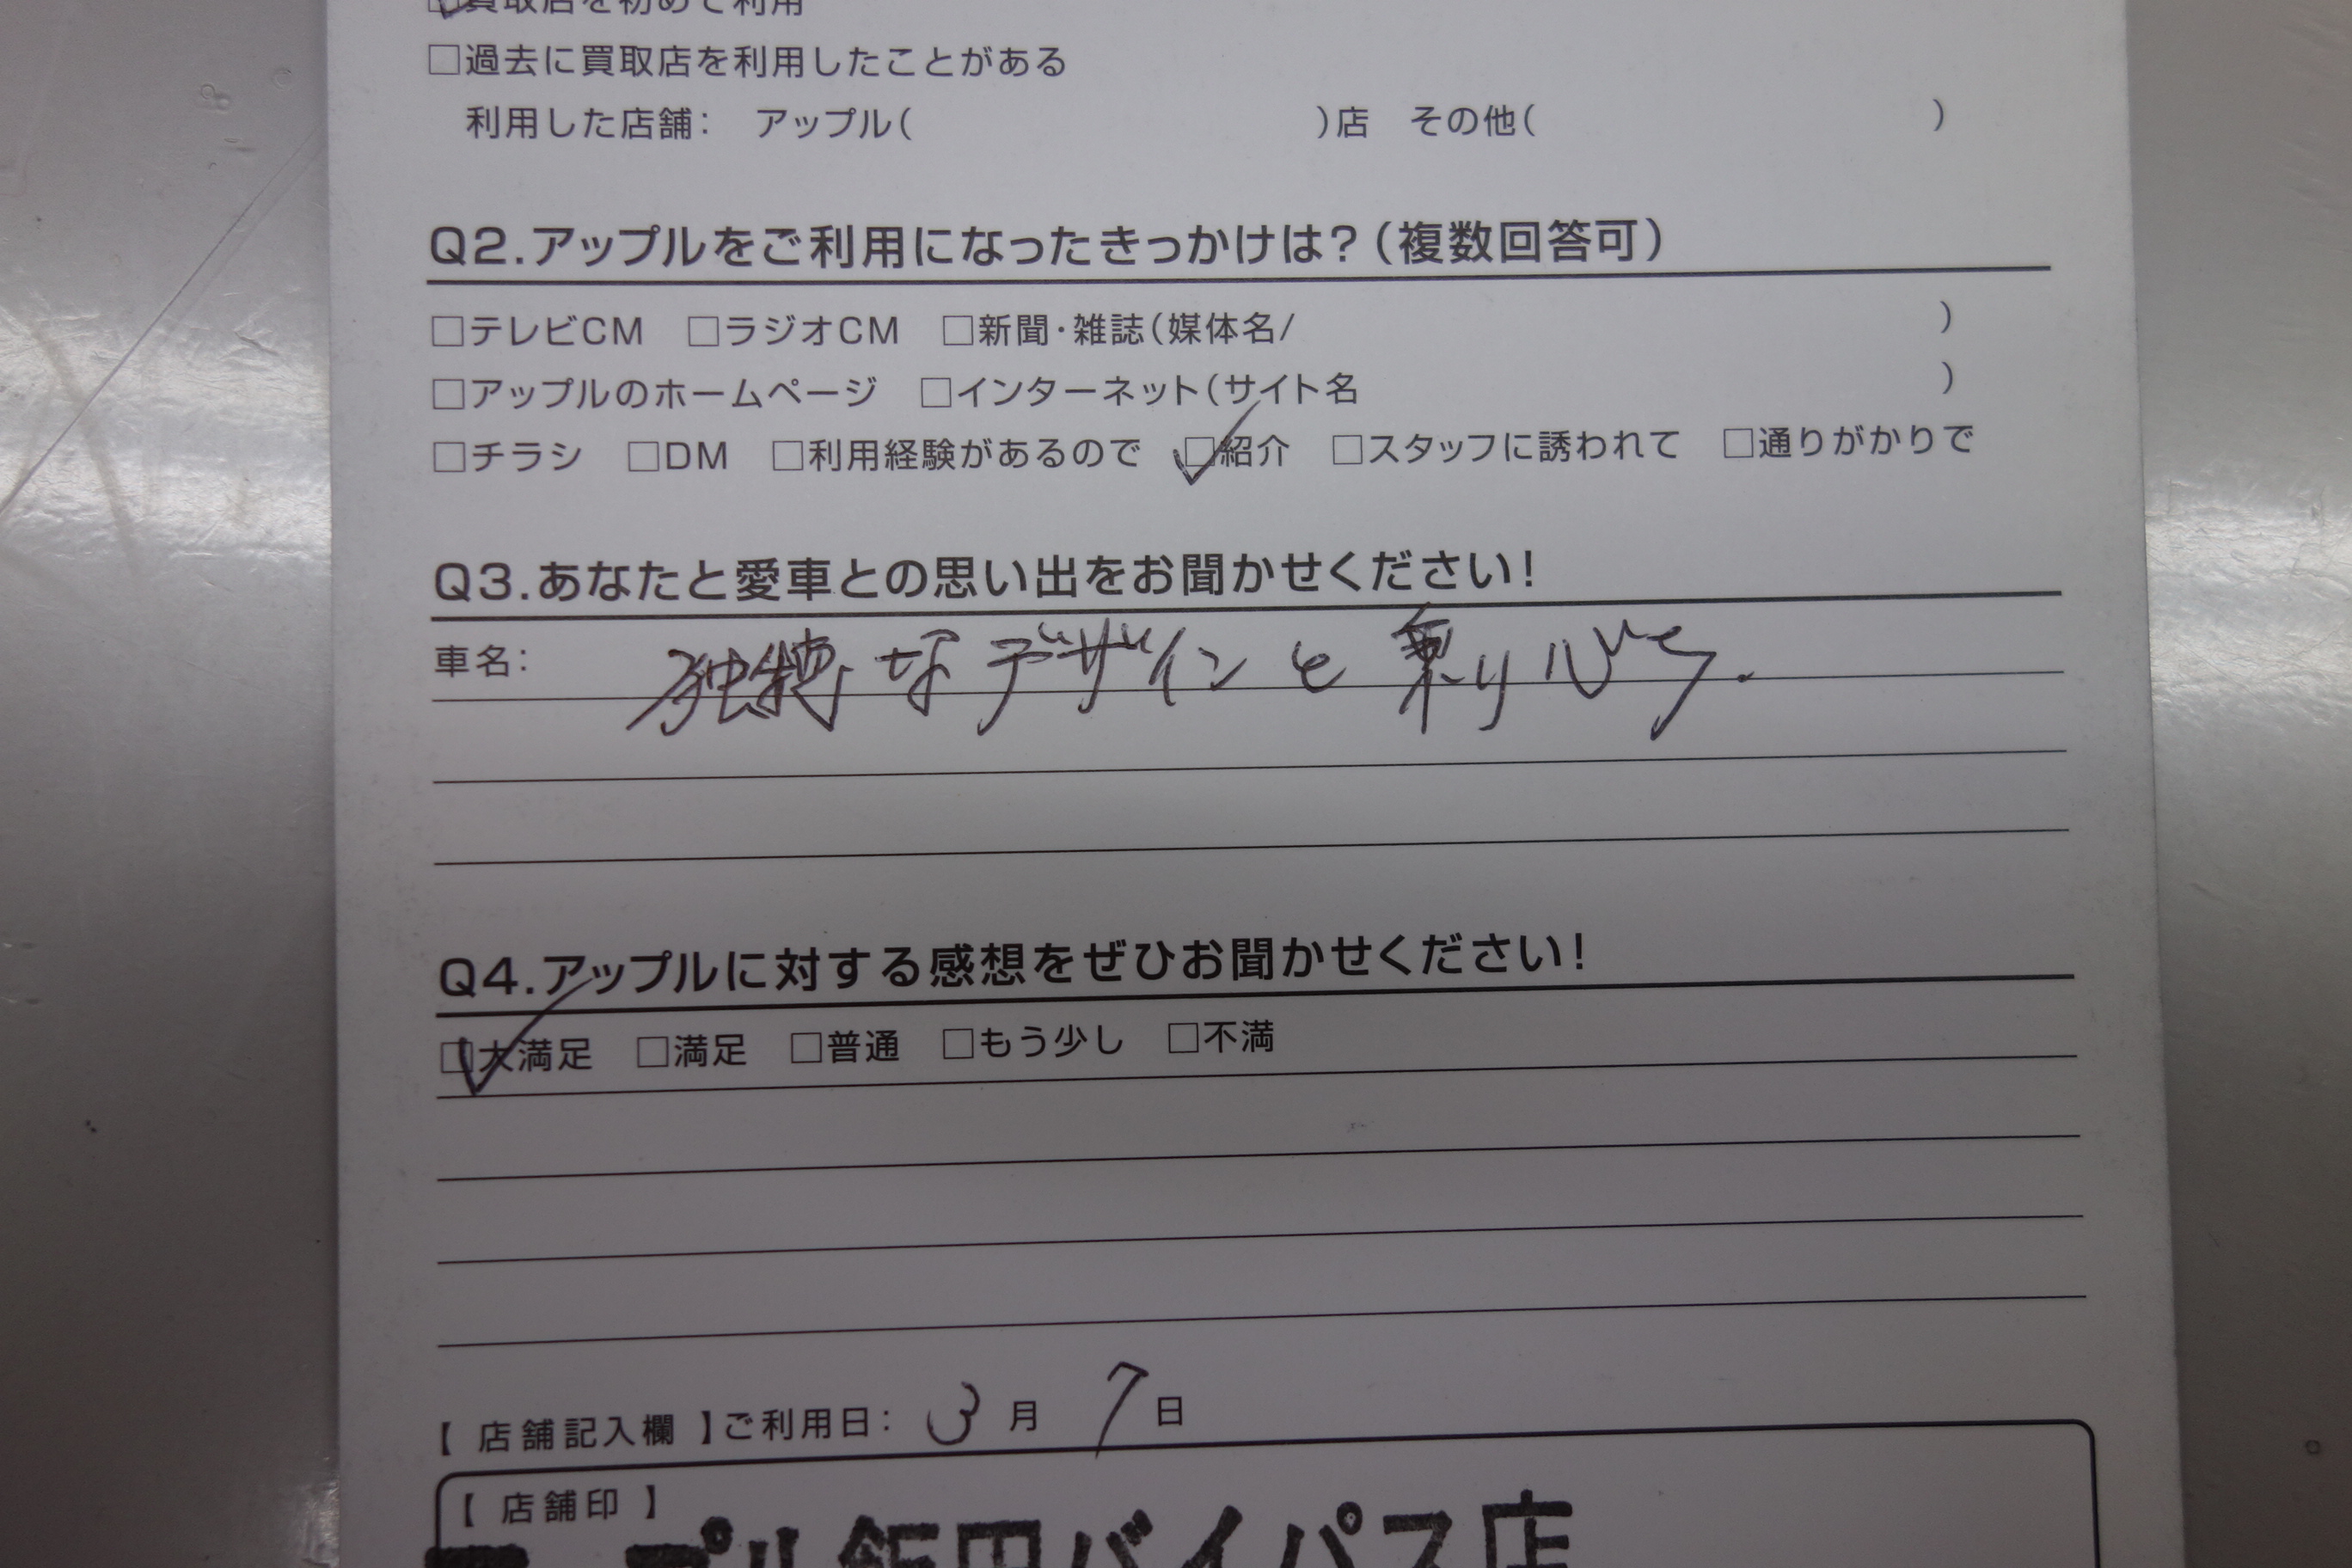 ☑買取店を初めて利用
□過去に買取店を利用したことがある
利用した店舗： アップル( )店 その他( )
Q2.アップルをご利用になったきっかけは?(複数回答可)
□テレビCM □ラジオCM □新聞・雑誌(媒体名/ )
□アップルのホームページ □インターネット(サイト名 )
□チラシ □DM □利用経験があるので ☑紹介 □スタッフに誘われて □通りがかりで
Q3.あなたと愛車との思い出をお聞かせください!
車名： 独特なデザインと乗り心ち.
Q4.アップルに対する感想をぜひお聞かせください!
☑大満足 □満足 □普通 □もう少し □不満
【 店舗記入欄 】ご利用日： 3 月 7 日
【 店舗印 】
アップル飯田バイパス店